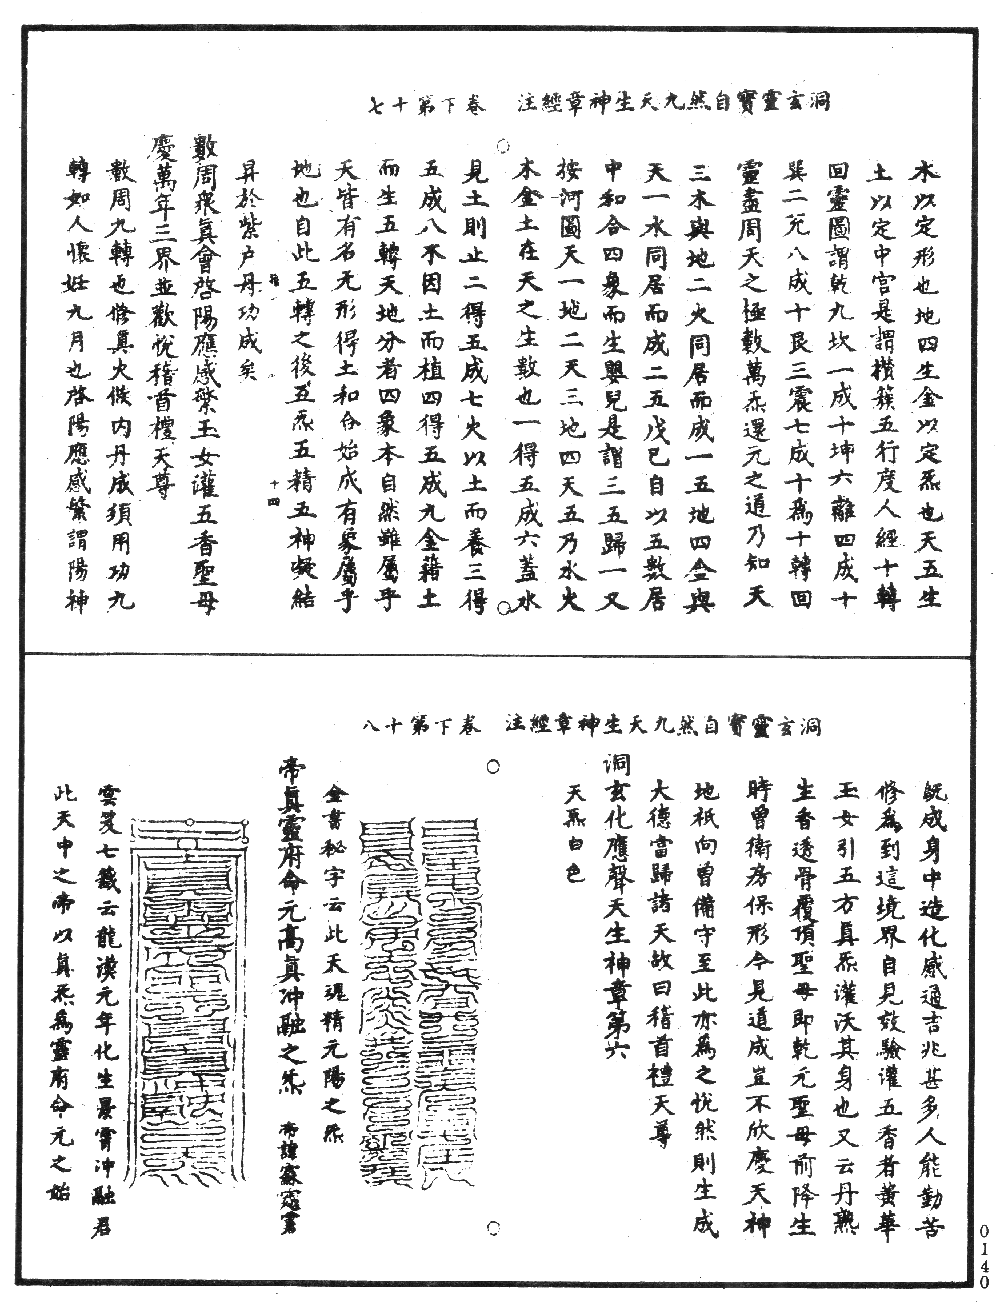 洞玄靈寶自然九天生神章經注　卷下第十七
木以定形也地四生金以定炁也天五生
土以定中宮是謂攢簇五行度人經十轉
回靈圖謂乾九坎一成十坤六離四成十
巽二兌八成十艮三震七成十爲十轉回
靈盡周天之極數萬炁還元之道乃知天
三木與地二火同居而成一五地四金與
天一水同居而成二五戊己自以五數居
中和合四象而生嬰兒是謂三五歸一又
按河圖天一地二天三地四天五乃水火
木金土在天之生數也一得五成六蓋水
見土則止二得五成七火以土而養三得
五成八木因土而植四得五成九金籍土
而生五轉天地分者四象本自然雖屬乎
天皆有名无形得土和合始成有象屬乎
地也自此五轉之後五炁五精五神凝結
昇於紫戶丹功成矣
十四
數周衆真會啓陽應感繁玉女灌五香聖母
慶萬年三界並歡悅稽首禮天尊
數周九轉也修真火候內丹成須用功九
轉如人懷妊九月也啓陽應感繁謂陽神
洞玄靈寶自然九天生神章經注　卷下第十八
既成身中造化感通吉兆甚多人能勤苦
修爲到這境界自見效驗灌五香者黃華
玉女引五方真炁灌沃其身也又云丹熟
生香透骨覆頂聖母即乾元聖母前降生
時曾衛房保形今見道成豈不欣慶天神
地祇向曾備守至此亦爲之悅然則生成
大德當歸諸天故曰稽首禮天尊
洞玄化應聲天生神章第六
天炁白色
金書秘字云此天魂精元陽之炁
帝真靈府命元高真沖融之炁
雲笈七籤云龍漢元年化生景霄沖融君
此天中之帝以真炁爲靈府命元之始
0140